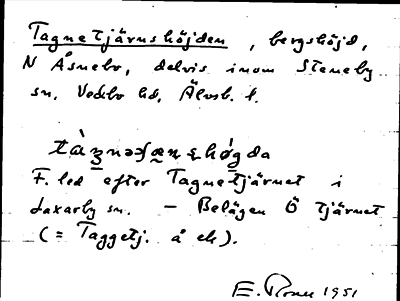 Tagnetjärnshöjden, bergshöjd,
N Åsnebo, delvis inom Steneby
sn, Vedbo hd, Älvsb. l.
F. led efter Tagnetjärnet i
Laxarby sn. — Belägen Ö tjärnet
(= Taggetj. å ek).
E. 1951